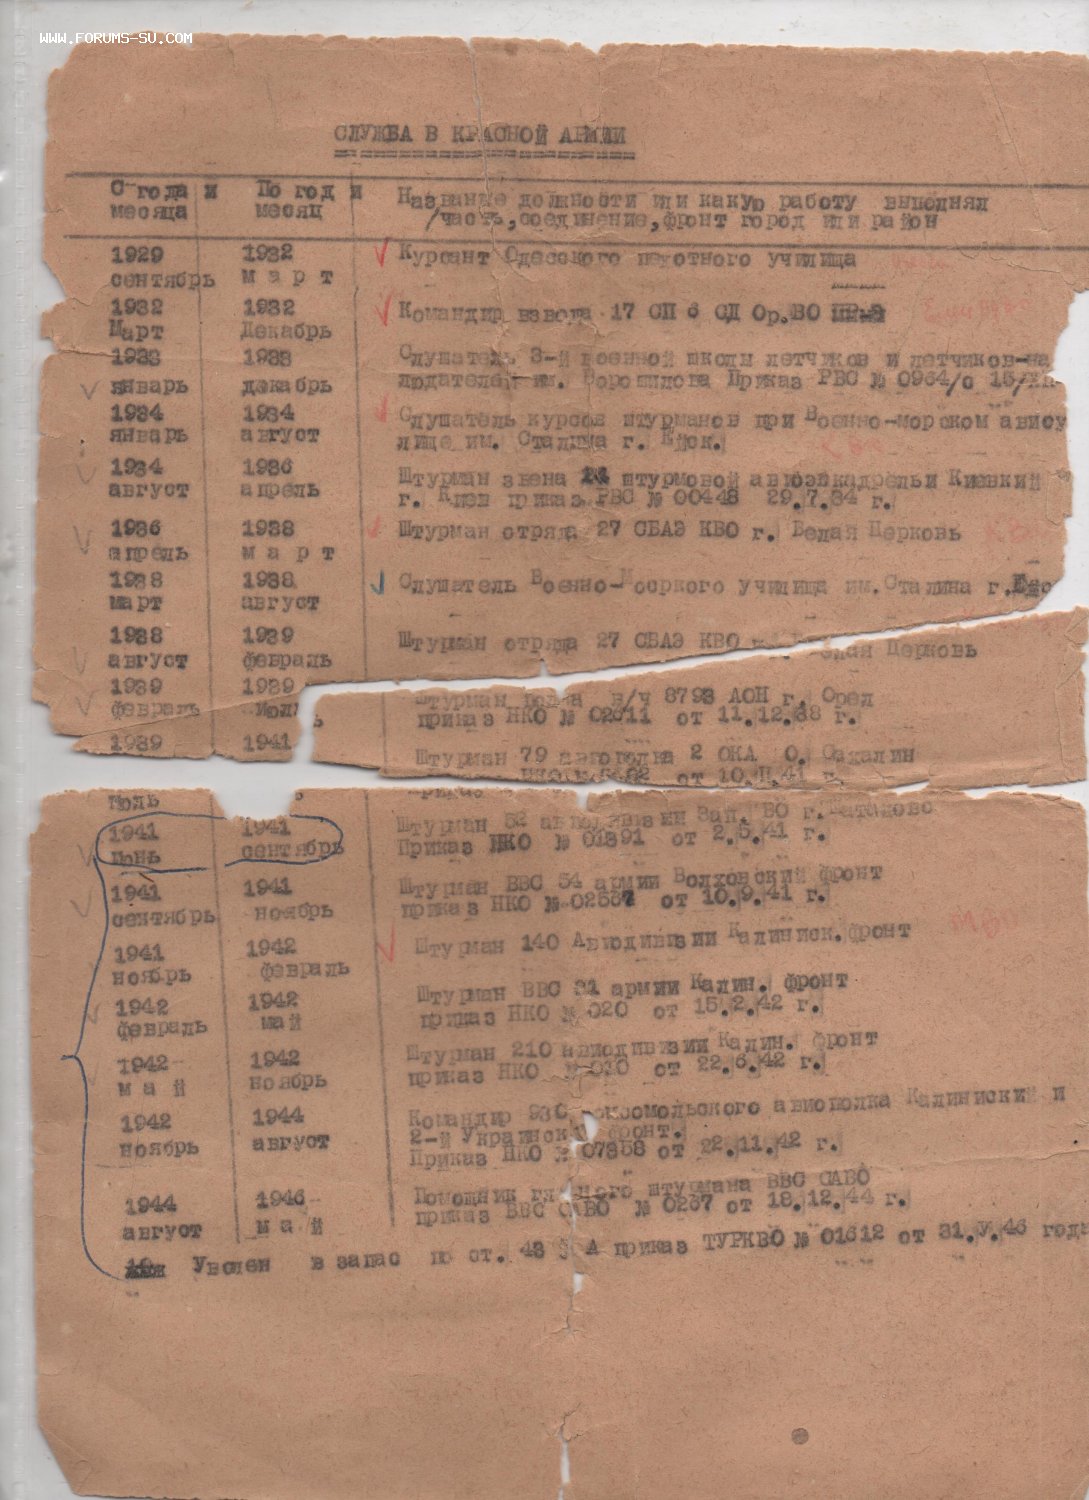 WWW.FORUMS-SU.COM
СЛУЖБА В КРАСНОЙ АРМИИ
С года и По год и Название должности или какую работу выполнял
месяца месяц /часть,соединение,фронт город или район
1929 1932 Курсант Одесского пехотного училища
сентябрь м а р т
1932 1932 Командир взвода 17 СП 6 СД Ор.ВО
Март Декабрь
1933 1933 Слушатель 3-й военной школы летчиков и летчиков-на
январь декабрь людателей им. Ворошилова Приказ РВС № 0964/с 15/XП
1934 1934 Слушатель курсов штурманов при Военно-морском авиоу
январь август лище им. Сталина г. Ейск.
КВО
1934 1936 Штурман звена штурмовой авиоэскадрельи Киевкий
август апрель г. Киев приказ РВС № 00448 29.7.34 г.
1936 1938 Штурман отряда 27 СБАЭ КВО г. Белая Церковь КВО
апрель м а р т
1938 1938 Слушатель Военно-Мосркого училища им.Сталина г.Ейс
март август
1938 1939 Штурман отряда 27 СБАЭ КВО елая Церковь
август февраль
1939 1939 Штурман полка в/ч 8793 АОН г. Орел
февраль июль приказ НКО № 02611 от 11.12.38 г.
1939 1941 Штурман 79 авиополка 2 ОКА О. Сахалин
от 10.П.41 г.
июль
1941 1941 Штурман 52 авиодивизии Зап. ВО г.
июнь сентябрь Приказ НКО № 01891 от 2.5.41 г.
1941 1941 Штурман ВВС 54 армии Волховский фронт
сентябрь ноябрь приказ НКО № 02667 от 10.9.41 г.
МВО
1941 1942 Штурман 140 Авиодивизии Калининск.фронт
ноябрь февраль
1942 1942 Штурман ВВС 31 армии Калин. фронт
февраль май приказ НКО № 020 от 15.2.42 г.
1942 1942 Штурман 210 авиодивизии Калин. фронт
м а й ноябрь приказ НКО № 030 от 22.6.42 г.
1942 1944 Командир 930 комсомольского авиополка Калиниский и
ноябрь август 2-й Украински фронт.
Приказ НКО № 07358 от 22.11.42 г.
1944 1946 Помощник гл ного штурмана ВВС САВО
август м а й приказ ВВС САВО № 0267 от 18.12.44 г.
Уволен в запас по ст. 43 А приказ ТУРКВО № 01612 от 31.У.46 года